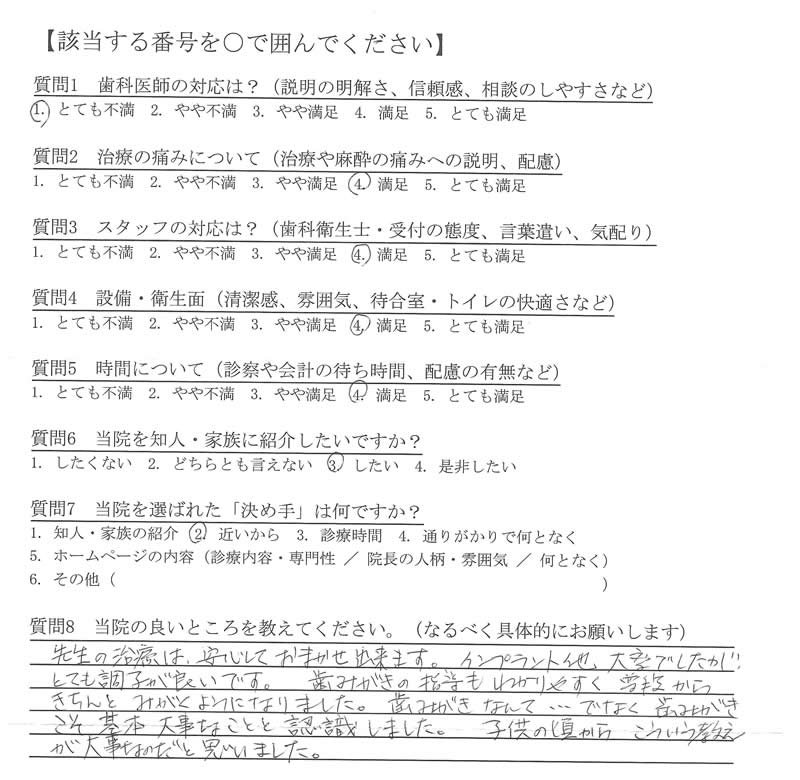 【該当する番号を○で囲んでください】
質問1　歯科医師の対応は？（説明の明解さ、信頼感、相談のしやすさなど）
1. とても不満　2. やや不満　3. やや満足　4. 満足　5. とても満足
質問2　治療の痛みについて（治療や麻酔の痛みへの説明、配慮）
1. とても不満　2. やや不満　3. やや満足　4. 満足　5. とても満足
質問3　スタッフの対応は？（歯科衛生士・受付の態度、言葉遣い、気配り）
1. とても不満　2. やや不満　3. やや満足　4. 満足　5. とても満足
質問4　設備・衛生面（清潔感、雰囲気、待合室・トイレの快適さなど）
1. とても不満　2. やや不満　3. やや満足　4. 満足　5. とても満足
質問5　時間について（診察や会計の待ち時間、配慮の有無など）
1. とても不満　2. やや不満　3. やや満足　4. 満足　5. とても満足
質問6　当院を知人・家族に紹介したいですか？
1. したくない　2. どちらとも言えない　3. したい　4. 是非したい
質問7　当院を選ばれた「決め手」は何ですか？
1. 知人・家族の紹介　2. 近いから　3. 診療時間　4. 通りがかりで何となく
5. ホームページの内容（診療内容・専門性 ／ 院長の人柄・雰囲気 ／ 何となく）
6. その他（　　　）
質問8　当院の良いところを教えてください。（なるべく具体的にお願いします）
先生の治療は、安心しておまかせ出来ます。インプラント他、大変でしたが
とても調子が良いです。　歯みがきの指導もわかりやすく　普段から
きちんとみがくようになりました。歯みがきなんて…でなく歯みがき
こそ　基本　大事なことと認識しました。　子供の頃から　こういう教え
が大事なのだと思いました。